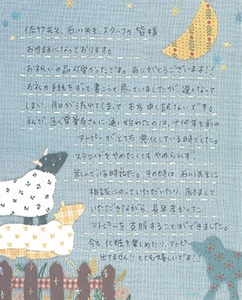 佐竹先生、石川先生、スタッフの皆様
お世話になっております。
お祝いの品が届いたです。ありがとうございます!!
お礼の手紙をずっと書こうと思っていましたが、遅くなって
しまい、月日が流れてしまって本当に申し訳ないです。
私が に通い始めたのは、十代
アトピーが
ステロイドをやめたくてもやめられず、
苦しんでいる時でした。その時は、石川先生に
相談にのっていただいたり、励まして
いただきながら、長年辛かった
アトピーを克服することができました。
今も化粧を楽しめたり、アトピー
出てません!とても嬉しいです!!